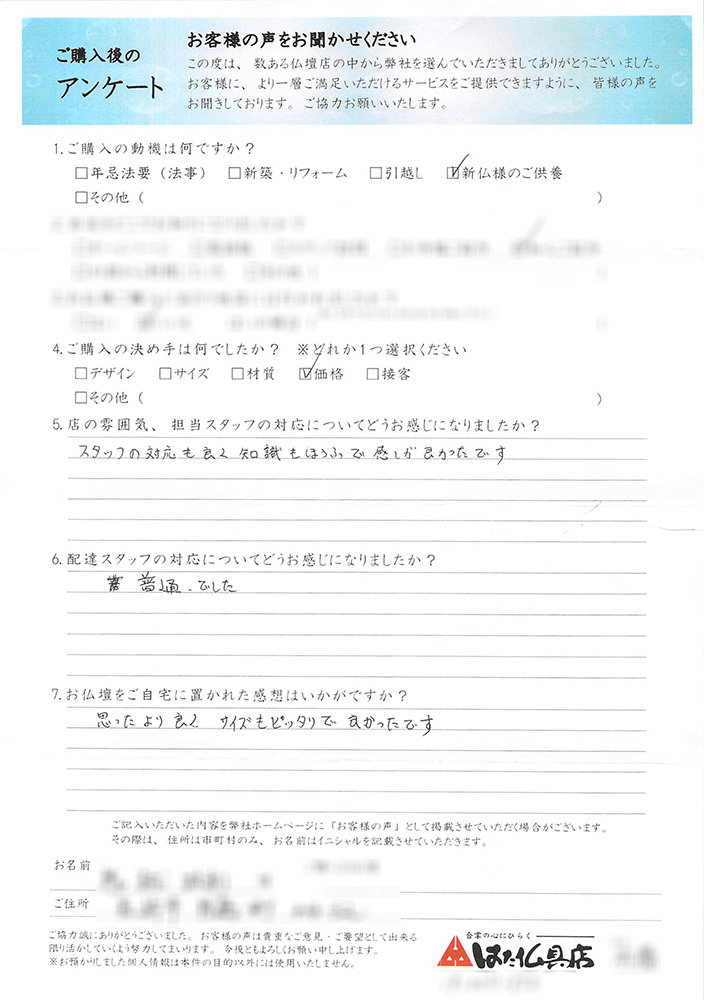 ご購入後の
アンケート
お客様の声をお聞かせください
この度は、数ある仏壇店の中から弊社を選んでいただきましてありがとうございました。
お客様に、より一層ご満足いただけるサービスをご提供できますように、皆様の声を
お聞きしております。ご協力お願いいたします。
1.ご購入の動機は何ですか？
□年忌法要（法事） □新築・リフォーム □引越し ☑新仏様のご供養
□その他（ ）
4.ご購入の決め手は何でしたか？ ※どれか1つ選択ください
□デザイン □サイズ □材質 ☑価格 □接客
□その他（ ）
5.店の雰囲気、担当スタッフの対応についてどうお感じになりましたか？
スタッフの対応も良く知識もほうふで感じが良かったです
6.配達スタッフの対応についてどうお感じになりましたか？
普通、でした
7.お仏壇をご自宅に置かれた感想はいかがですか？
思ったより良く サイズもピッタリで良かったです
ご記入いただいた内容を弊社ホームページに「お客様の声」として掲載させていただく場合がございます。
その際は、住所は市町村のみ、お名前はイニシャルを記載させていただきます。
お名前
ご住所
ご協力誠にありがとうございました。お客様の声は貴重なご意見・ご要望として出来る
限り活かしていくよう努力してまいります。今後ともよろしくお願い申し上げます。
※お預かりしました個人情報は本件の目的以外には使用いたしません。
合掌の心にひらく
はた仏具店